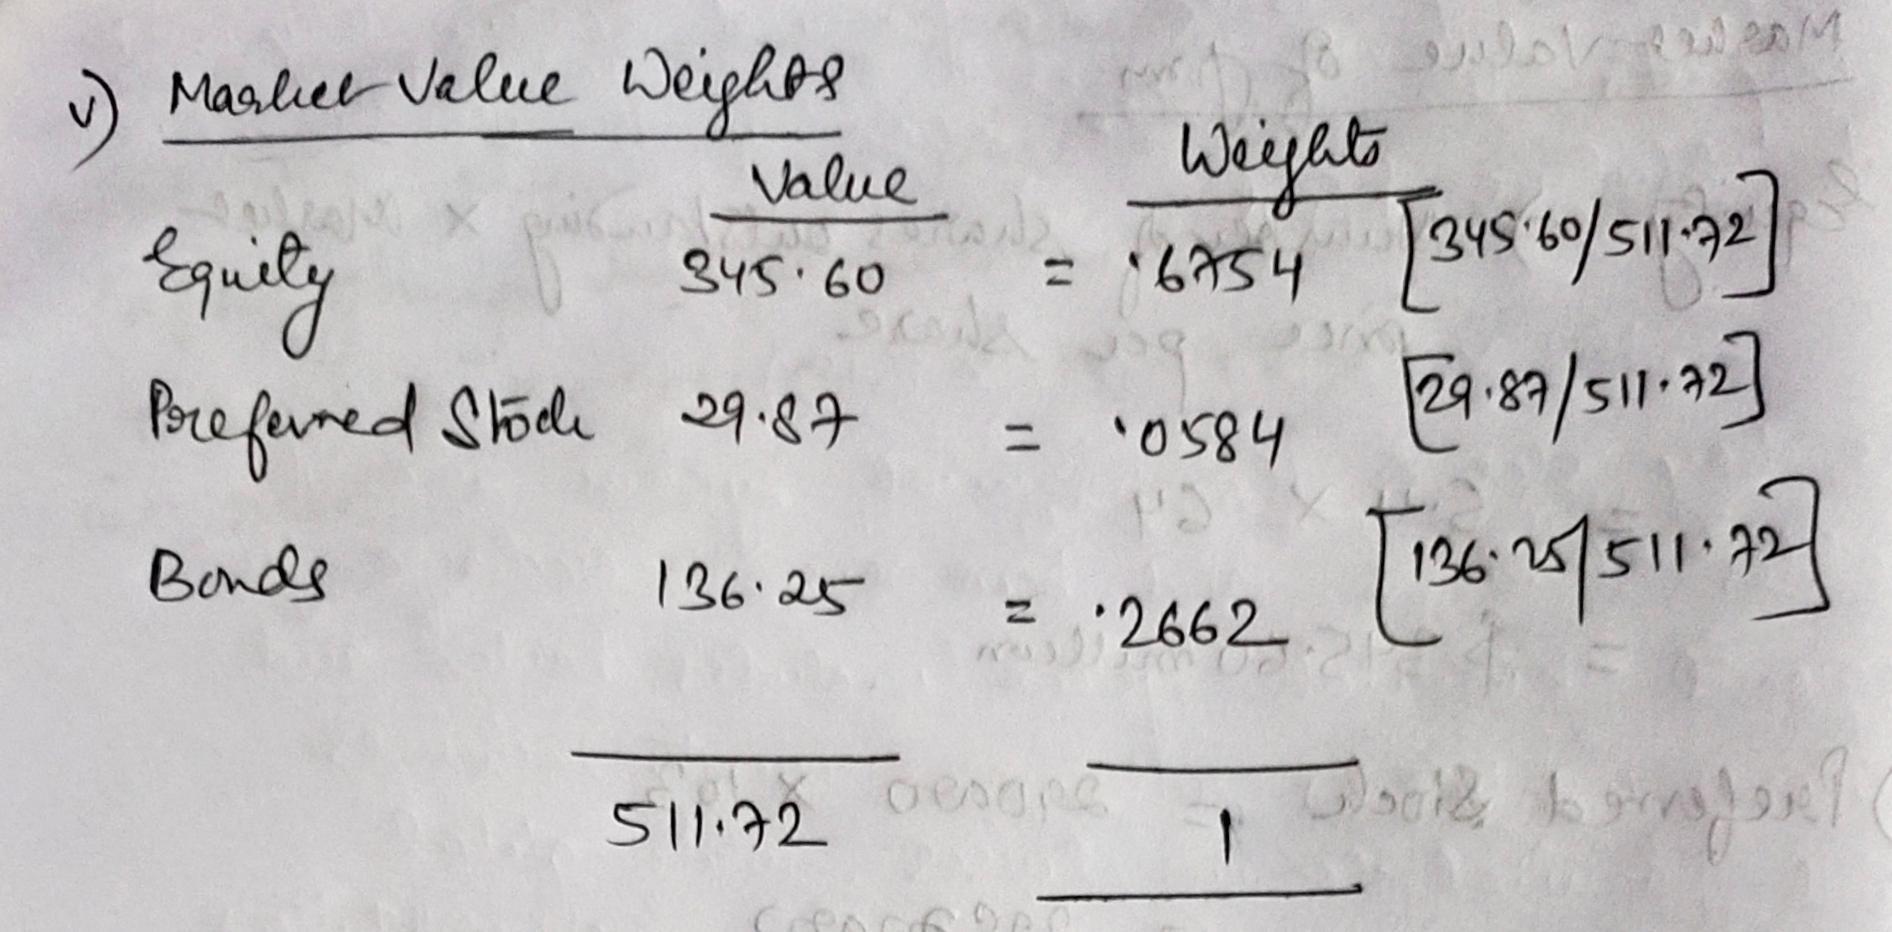 v) Market Value Weights
Value Weights
Equity 345.60 = .6754 [345.60/511.72]
Preferred Stock 29.87 = .0584 [29.87/511.72]
Bonds 136.25 = .2662 [136.25/511.72]
511.72 1